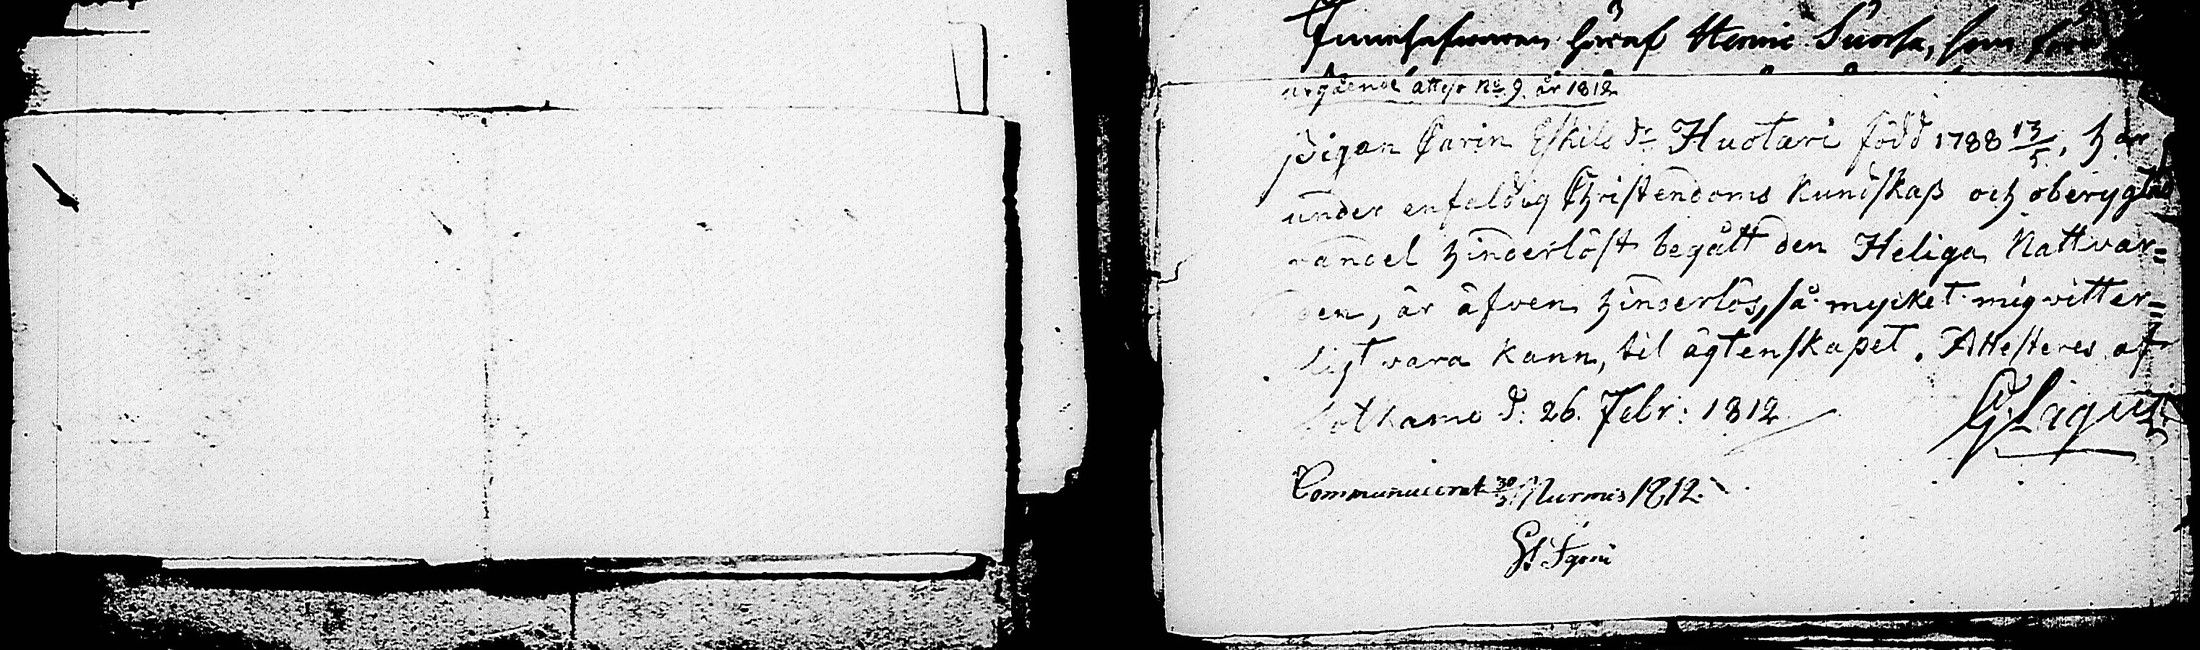 Innehafwaren häraf Henric Suorsa, som
utgående attest No. 9. år 1812
Pigan Carin Eskils dr Huotari född 1788 13/5, har
under enfaldig Christendoms kundskap och oberygtad
vandel hinderlöst begått den Heliga Nattvar=
den, är äfven hinderlös, så mycket mig vitter=
ligt vara kann, til ägtenskapet. Attesteres af
Sotkamo d. 26. Febr: 1812 G Ligné
Communicerat 30/3 Nurmis 1812.